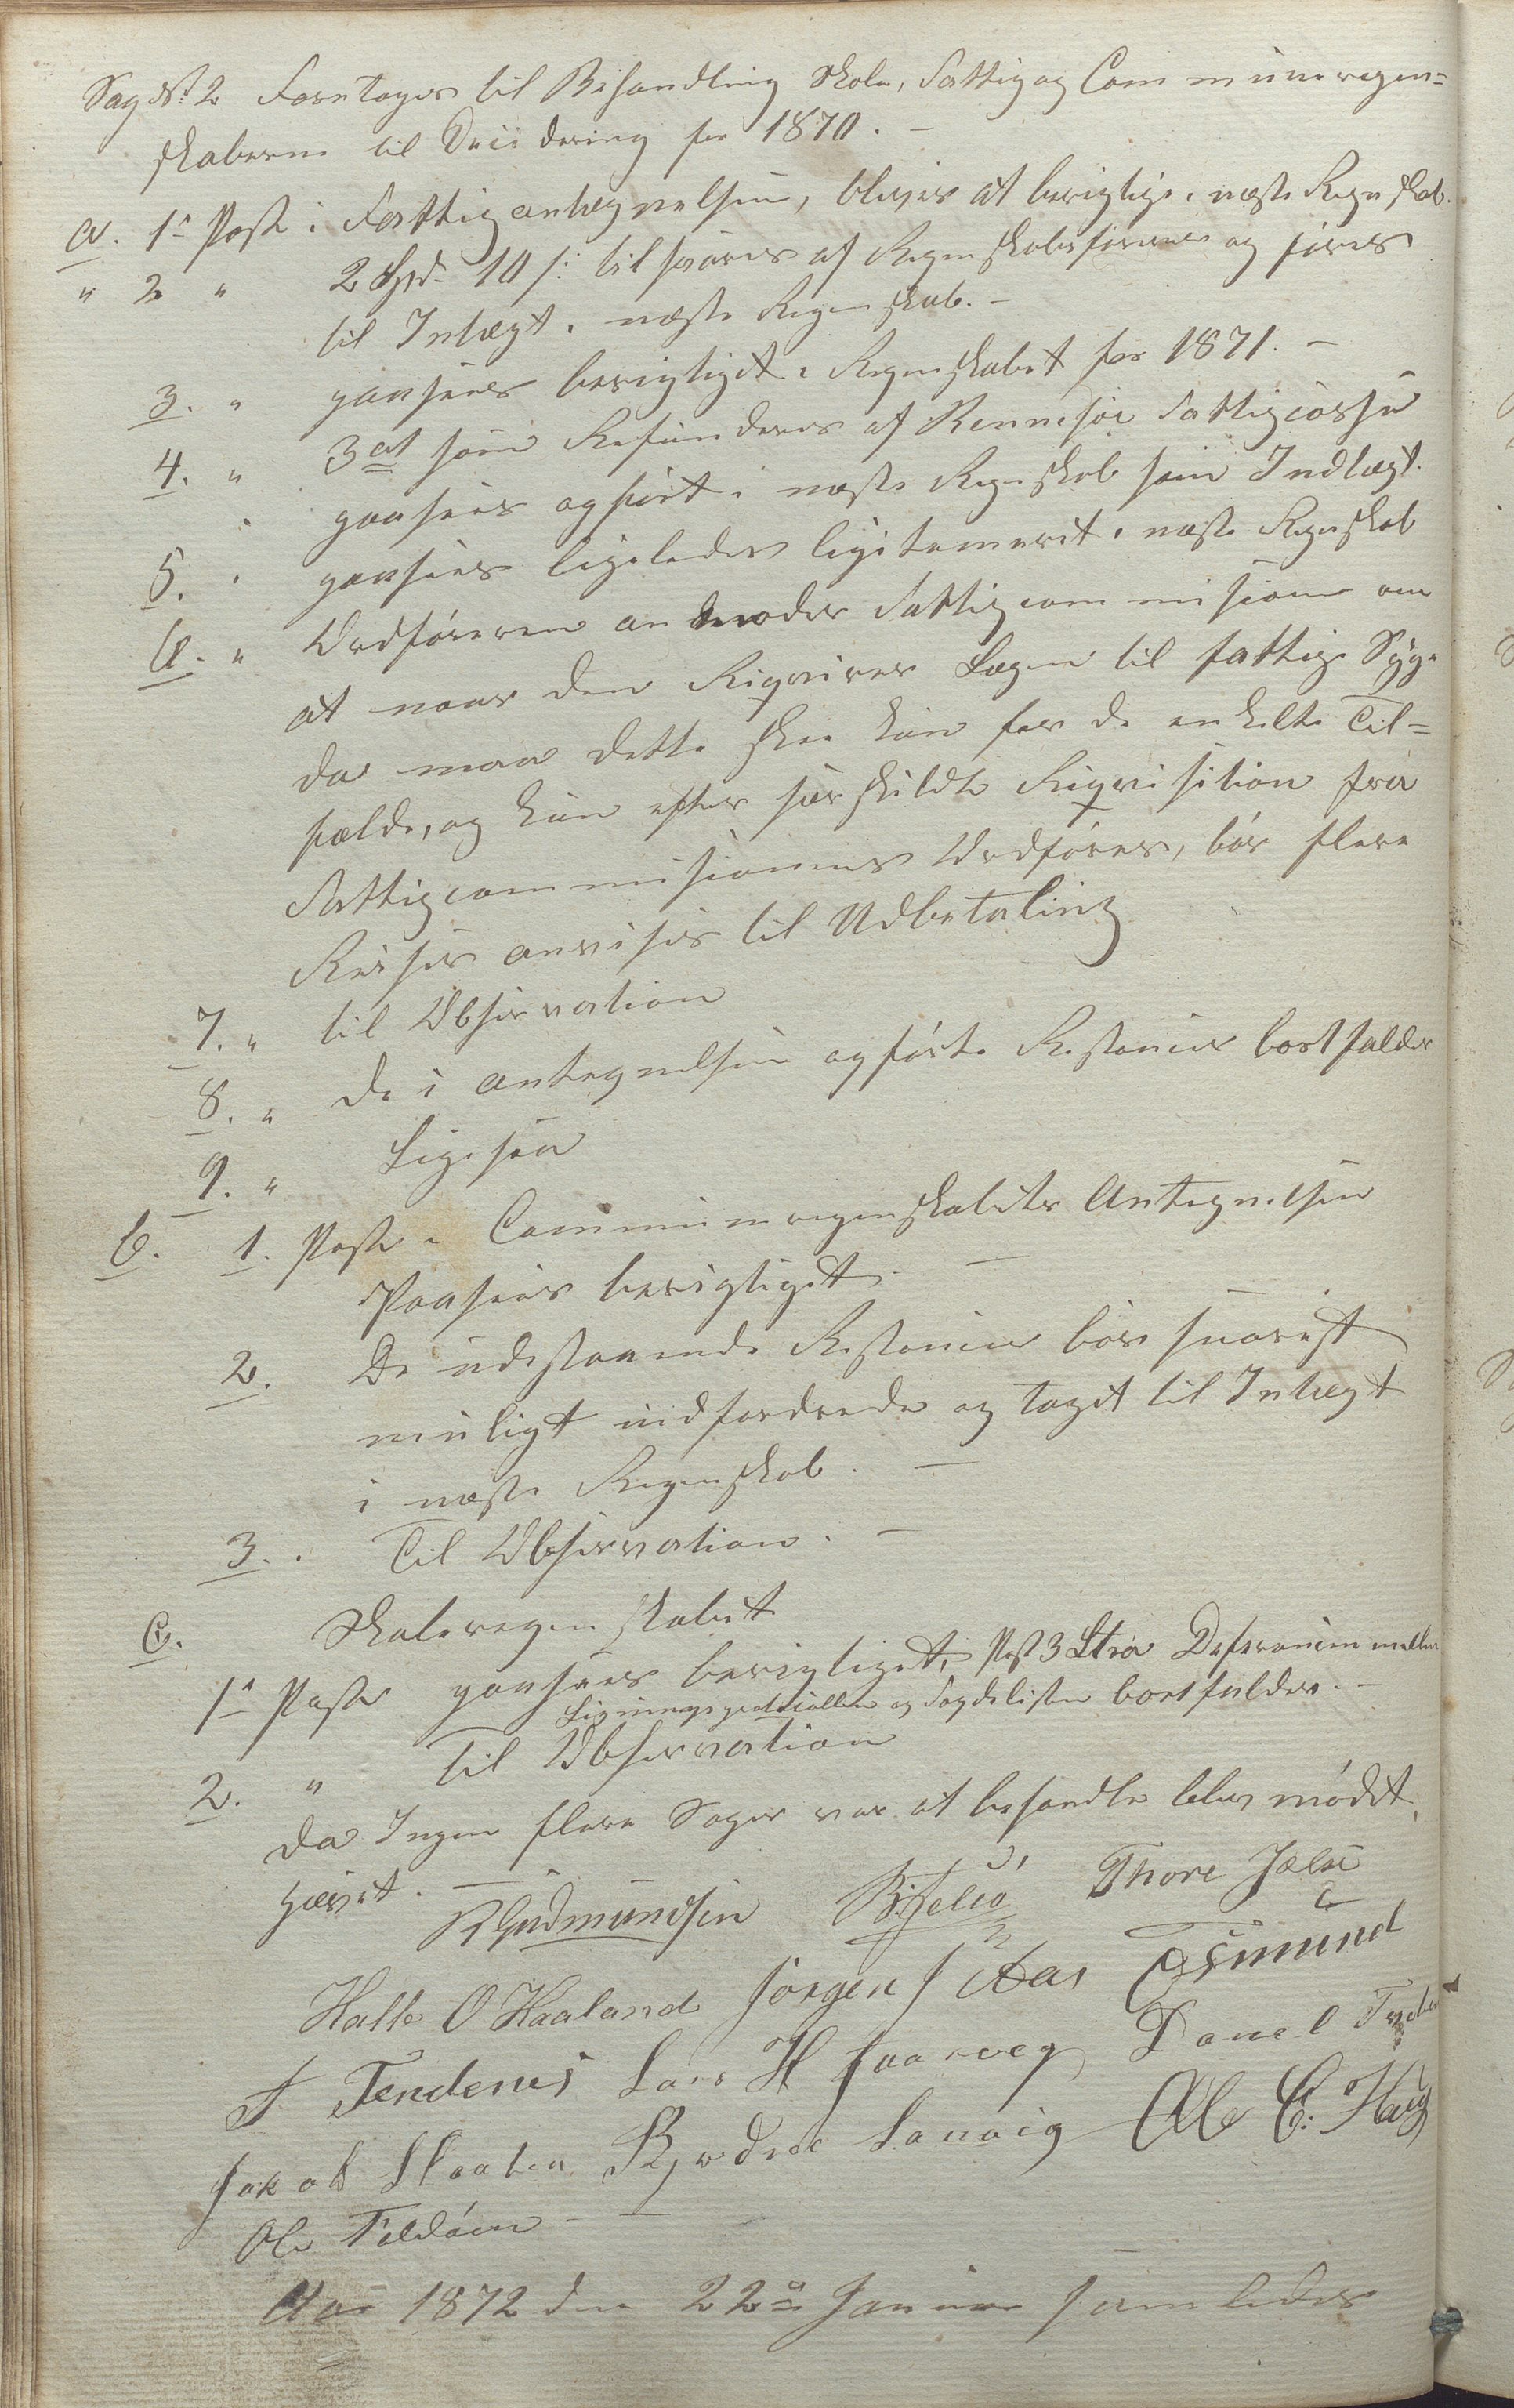 Sag No 2 Foretoges til Behandling Skole, Fattig og Communeregen-
skaberne til Deciidering for 1870. —
a. 1ste Post i Fattigantegnelsen, bliver at berigtige i næste Regnskab.
" 2 " 2 Spd. 10 s: tilsvares af Regnskabsføreren og føres
til Intægt i næste Regnskab. —
3. " paasees berigtiget i Regnskabet for 1871. —
4. " 3 som Refunderes af Rennesøe Fattigcasse
paasees opført i næste Regnskab som Indtægt.
5. " paasees ligeledes legitemeret i næste Regnskab
6. " Ordføreren anmoder Fattigcommisionen om
at naar den Reqvirer Lægen til fattige Syge
da maa dette skee kun for de enkelte Til-
fælde, og kun efter særskildte Reqvisition fra
Fattigcommisionens Ordfører, bør flere
Reiser anvises til Udbetaling
7. " til Observation
8. " de i Antegnelsen opførte Restancer bortfalder
9. " Ligesaa
b. 1. Post i Communeregenskabets Antegnelsen
Paasees berigtiget. —
2. De udestaaende Restancer bør snarest
muligt indfordrede og taget til Intægt
i næste Regenskab. —
3. " Til Observation. —
C. Skoleregenskabet
1ste Post paasees berigtiget, Post 3 Ltra Deferencen mellem
Ligningsprotocollen og Fogdelisten bortfalder. —
2. " til Observation
Da Ingen flere Sager var at behandle blev mødet
hævet. —
R Gudmundsen Thore Jælse
Halle O Haaland Jørgen J Aas Osmund
T Tendenes Lars H Faaveg Danel
Jakob Slaaten Lanvig Ole C: Haug
Ole Foldøen —
Aar 1872 den 22de Januar samledes